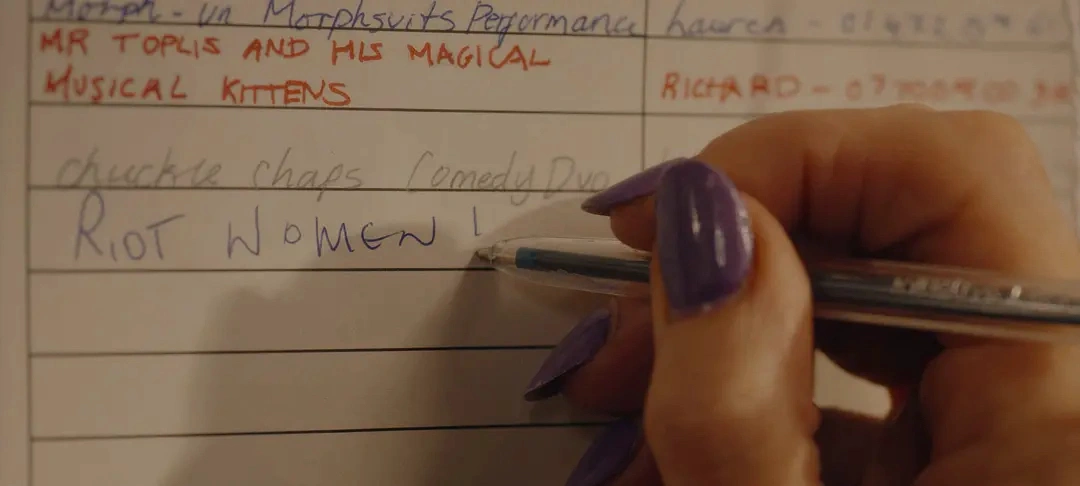 Morph-in Morphsuits Performance Lauren -
MR TOPLIS AND HIS MAGICAL
MUSICAL KITTENS RICHARD -
chuckle chaps Comedy Duo
RIOT WOMEN !